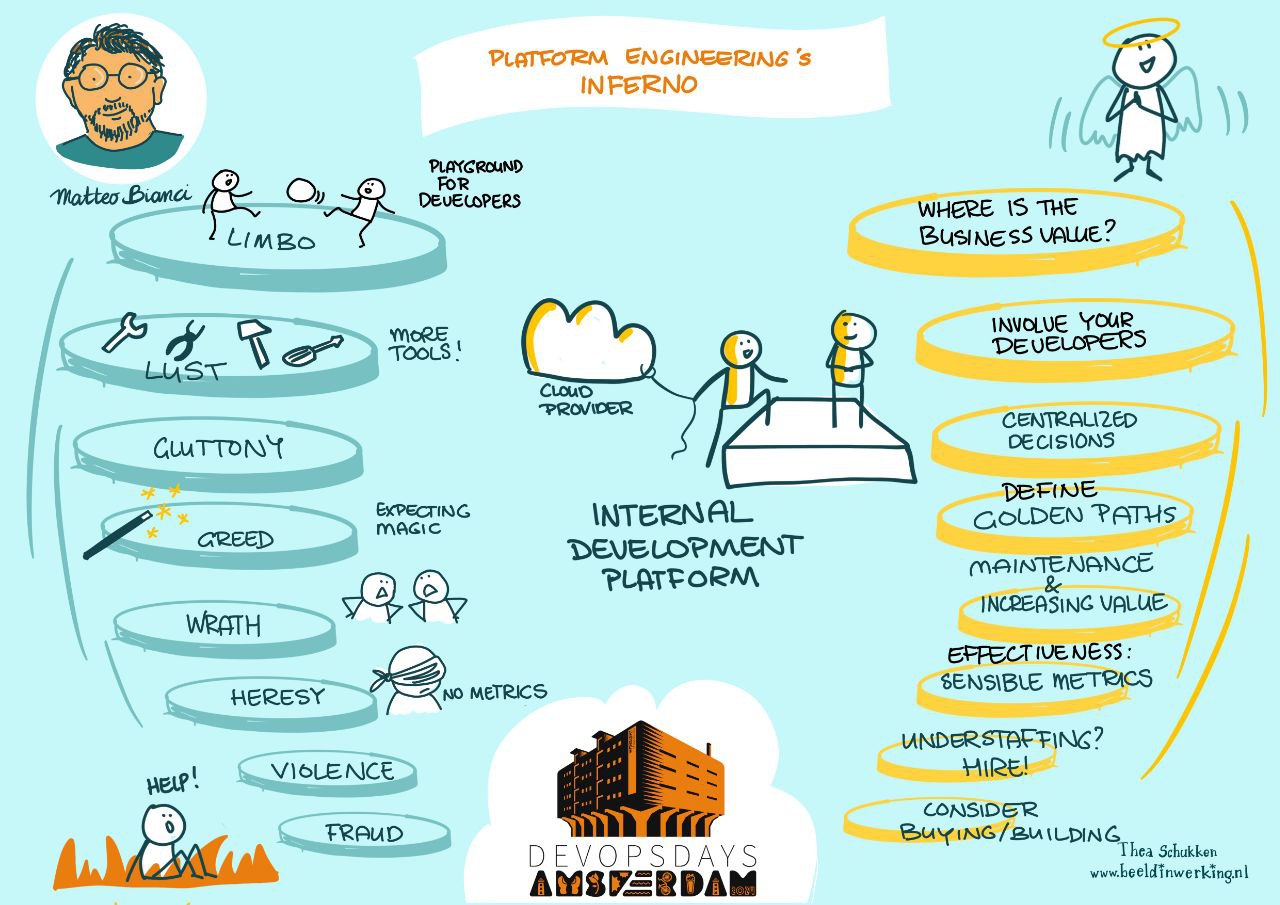 PLATFORM ENGINEERING'S
INFERNO
Matteo Bianci
PLAYGROUND
FOR
DEVELOPERS
LIMBO
MORE
TOOLS!
LUST
GLUTTONY
EXPECTING
MAGIC
GREED
WRATH
HERESY
NO METRICS
VIOLENCE
HELP!
FRAUD
CLOUD
PROVIDER
INTERNAL
DEVELOPMENT
PLATFORM
DEVOPSDAYS
AMSTERDAM
2024
WHERE IS THE
BUSINESS VALUE?
INVOLVE YOUR
DEVELOPERS
CENTRALIZED
DECISIONS
DEFINE
GOLDEN PATHS
MAINTENANCE
&
INCREASING VALUE
EFFECTIVENESS:
SENSIBLE METRICS
UNDERSTAFFING?
HIRE!
CONSIDER
BUYING/BUILDING
Thea Schukken
www.beeldinwerking.nl